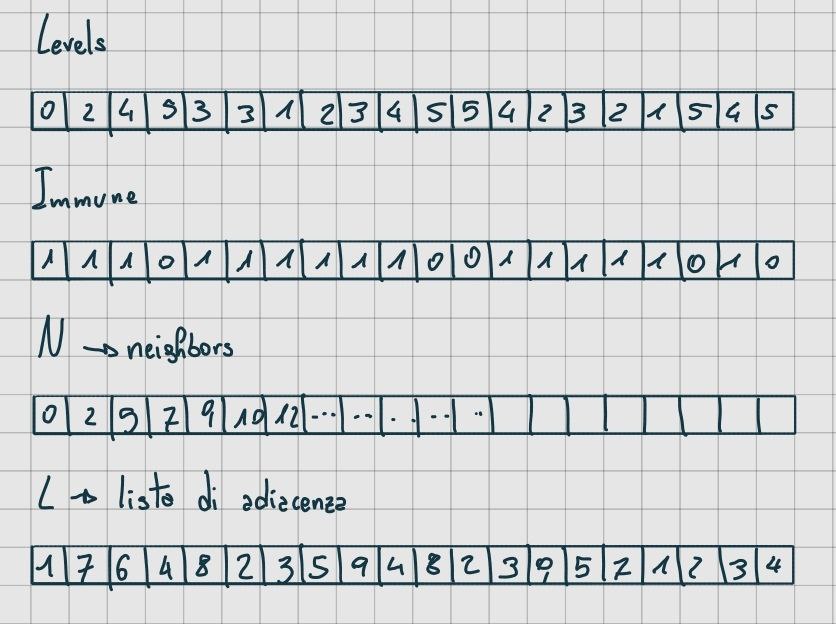 Levels
0 2 4 5 3 3 1 2 3 4 5 5 4 2 3 2 1 5 4 5
Immune
1 1 1 0 1 1 1 1 1 1 0 0 1 1 1 1 1 0 1 0
N → neighbors
0 2 5 7 9 10 12 ... ... .. ... ..
L → lista di adiacenza
1 7 6 4 8 2 3 5 9 4 8 2 3 9 5 7 1 2 3 4